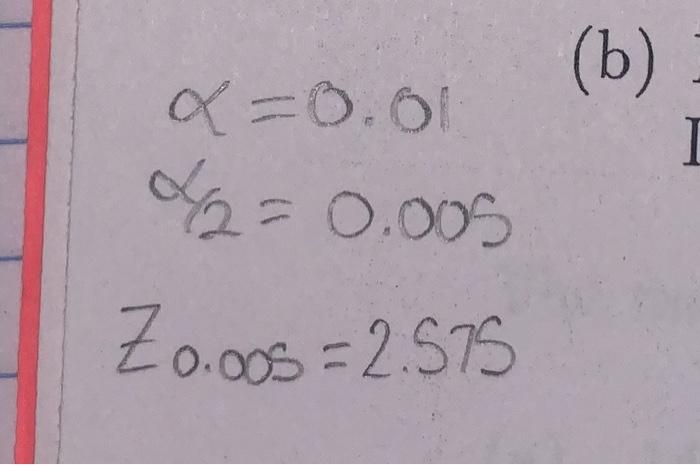 (b)
α = 0.01
α/2 = 0.005
Z0.005 = 2.575